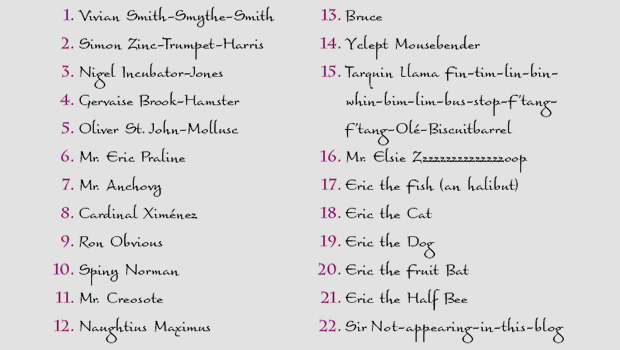 1. Vivian Smith-Smythe-Smith
2. Simon Zinc-Trumpet-Harris
3. Nigel Incubator-Jones
4. Gervaise Brook-Hamster
5. Oliver St. John-Mollusc
6. Mr. Eric Praline
7. Mr. Anchovy
8. Cardinal Ximénez
9. Ron Obvious
10. Spiny Norman
11. Mr. Creosote
12. Naughtius Maximus
13. Bruce
14. Yclept Mousebender
15. Tarquin Llama Fin-tim-lin-bin-
whin-bim-lim-bus-stop-F'tang-
F'tang-Olé-Biscuitbarrel
16. Mr. Elsie Zzzzzzzzzzzzzzzoop
17. Eric the Fish (an halibut)
18. Eric the Cat
19. Eric the Dog
20. Eric the Fruit Bat
21. Eric the Half Bee
22. Sir Not-appearing-in-this-blog